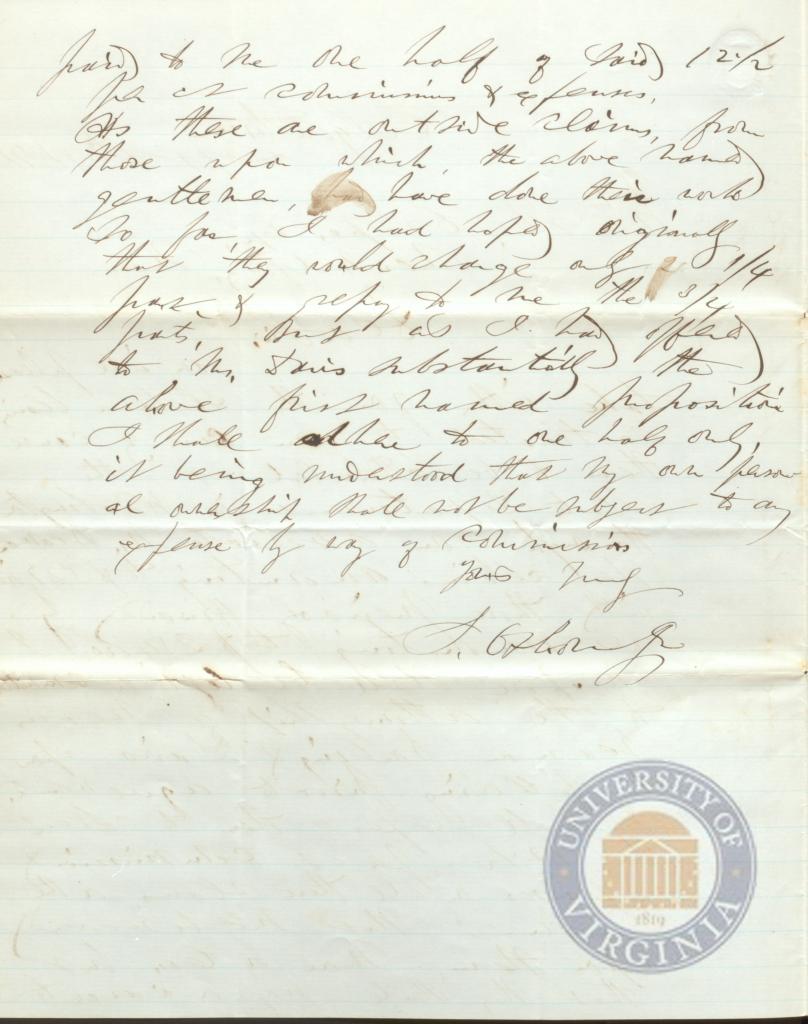 paid to me one half of said 12 1/2
per ct commissions & expenses.
As these are outside claims, from
those upon which, the above named
gentlemen, have done their work
So far, I had hoped originally
that they would charge only 1/4
part & repay to me the 3/4
parts, But as I had offered
to Mr. Davis substantially the
above first named proposition
I shall adhere to one half only,
it being understood that my own person
al ownership shall not be subject to any
expense by way of commissions
Yours Truly
S. Osborn Jr
UNIVERSITY OF
VIRGINIA
1819